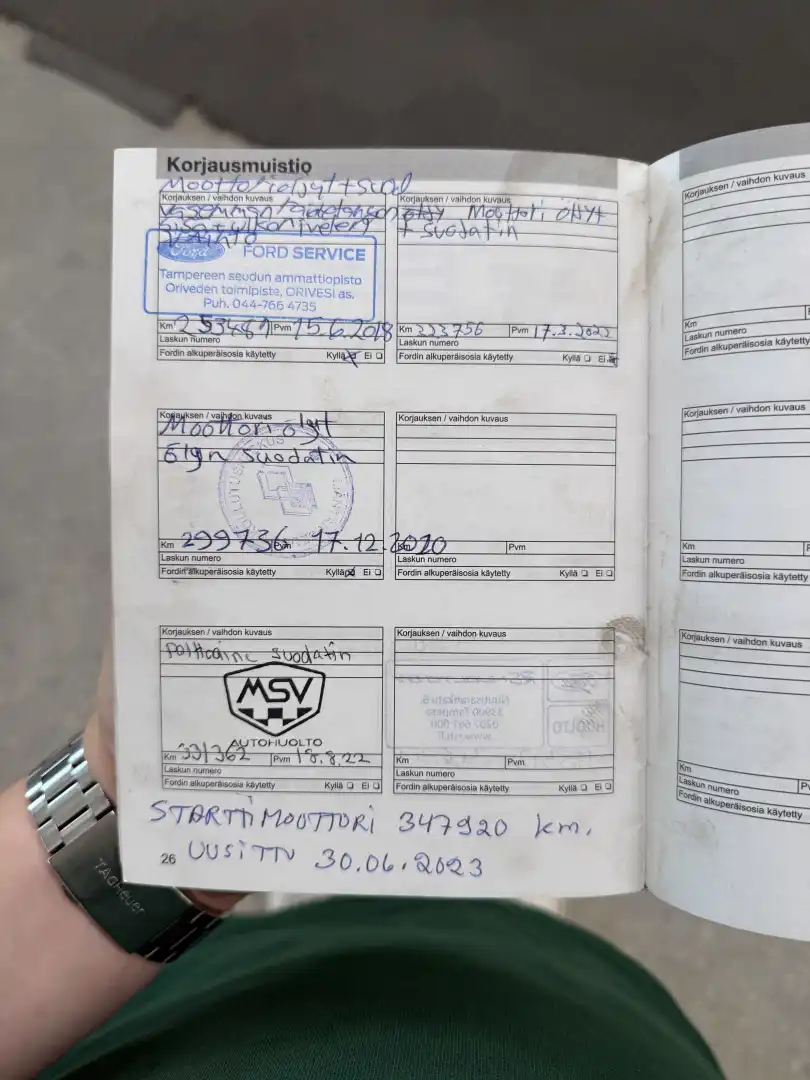 Korjausmuistio
Moottoriöljyt + suod
Korjauksen / vaihdon kuvaus
vasemman
Ford FORD SERVICE
Tampereen seudun ammattiopisto
Oriveden toimipiste, ORIVESI as.
Puh. 044-766 4735
Km 253487 Pvm 15.6.2018
Laskun numero
Fordin alkuperäisosia käytetty Kyllä Ei
Korjauksen / vaihdon kuvaus
Moottori öljyt
+ suodatin
Km 323756 Pvm 17.3.2022
Laskun numero
Fordin alkuperäisosia käytetty Kyllä Ei
Korjauksen / vaihdon kuvaus
Moottoriöljyt
öljyn suodatin
Km 299736 Pvm 17.12.2020
Laskun numero
Fordin alkuperäisosia käytetty Kyllä Ei
Korjauksen / vaihdon kuvaus
Km Pvm
Laskun numero
Fordin alkuperäisosia käytetty Kyllä Ei
Korjauksen / vaihdon kuvaus
polttoaine suodatin
MSV
AUTOHUOLTO
Km 331362 Pvm 18.8.22
Laskun numero
Fordin alkuperäisosia käytetty Kyllä Ei
Korjauksen / vaihdon kuvaus
Km Pvm
Laskun numero
Fordin alkuperäisosia käytetty Kyllä Ei
STARTTIMOOTTORI 347920 km.
26 UUSITTU 30.06.2023
Korjauksen / vaihdon kuvaus
Km
Laskun numero
Fordin alkuperäisosia käytetty
Korjauksen / vaihdon kuvaus
Km
Laskun numero
Fordin alkuperäisosia käytetty
Korjauksen / vaihdon kuvaus
Km
Laskun numero
Fordin alkuperäisosia käytetty
TAGHeuer